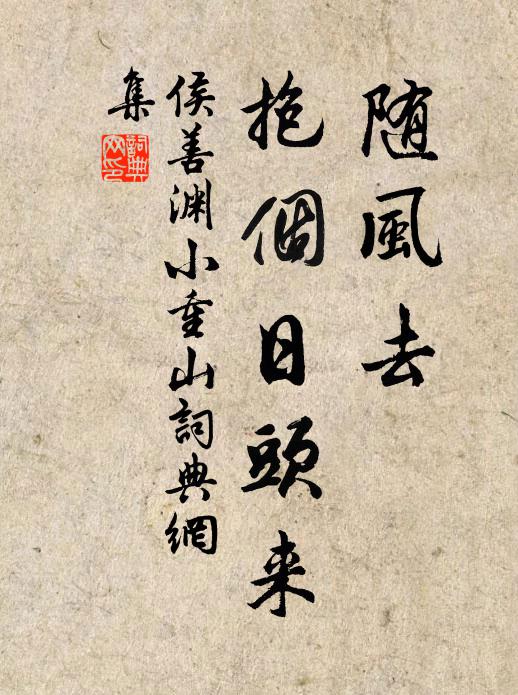 随風去
抱個日頭来
侯善渊小重山詞典網
集
詞典網印